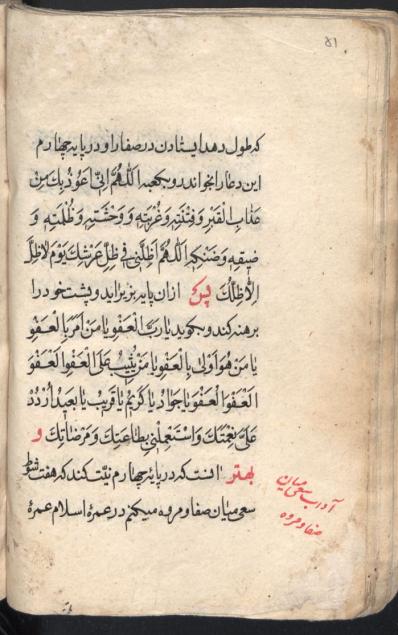 ۵۱
که طول دهد ایستادن در صفا را و در پایه چهارم
این دعا را بخواند رو بکعبه اَللّٰهُمَّ اِنّی اَعُوذُ بِكَ مِنْ
عَذابِ الْقَبْرِ وَفِتْنَتِهِ وَغُرْبَتِهِ وَ وَحْشَتِهِ وَظُلْمَتِهِ وَ
ضیقِهِ وَضَنْکِهِ اَللّٰهُمَّ اَظِلَّنی فی ظِلِّ عَرْشِكَ یَوْمَ لاظِلَّ
اِلاّظِلُّكَ پس ازان پایه بزیر اید و پشت خود را
برهنه کند و بگوید یا رَبَّ الْعَفْوِ یا مَنْ اَمَرَ بِالْعَفْوِ
یا مَنْ هُوَ اَوْلیٰ بِالْعَفْوِ یا مَنْ یُثیبُ عَلَی الْعَفْوِ اَلْعَفْوَ
اَلْعَفْوَ اَلْعَفْوَ یا جَوادُ یا کَریمُ یا قَریبُ یا بَعیدُ اُرْدُدْ
عَلَیَّ نِعْمَتَكَ وَاسْتَعْمِلْنی بِطاعَتِكَ وَ مَرْضاتِكَ و
بهتر انست که در پایه چهارم نیّت کند که هفت شوط
سعی میان صفا و مروه میکنم در عمرهٔ اسلام عمرهٔ
آداب سعی میان
صفا و مروه